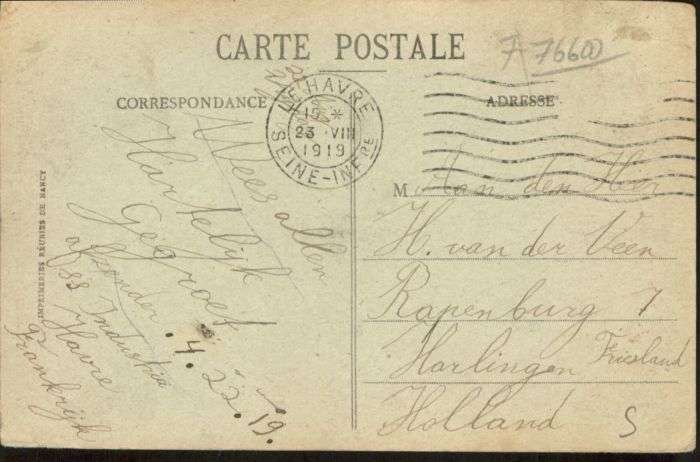 CARTE POSTALE
7-76600
CORRESPONDANCE
ADRESSE
LE HAVRE
15 *
23 VIII
1919
SEINE-INFRE
IMPRIMERIES RÉUNIES DE NANCY
Wees allen
Hartelijk
Gegroet
afzender
ss Industria
Havre
Frankrijk
4. 22. 19.
M Aan den Heer
H. van der Veen
Rapenburg 7
Harlingen Friesland
Holland S